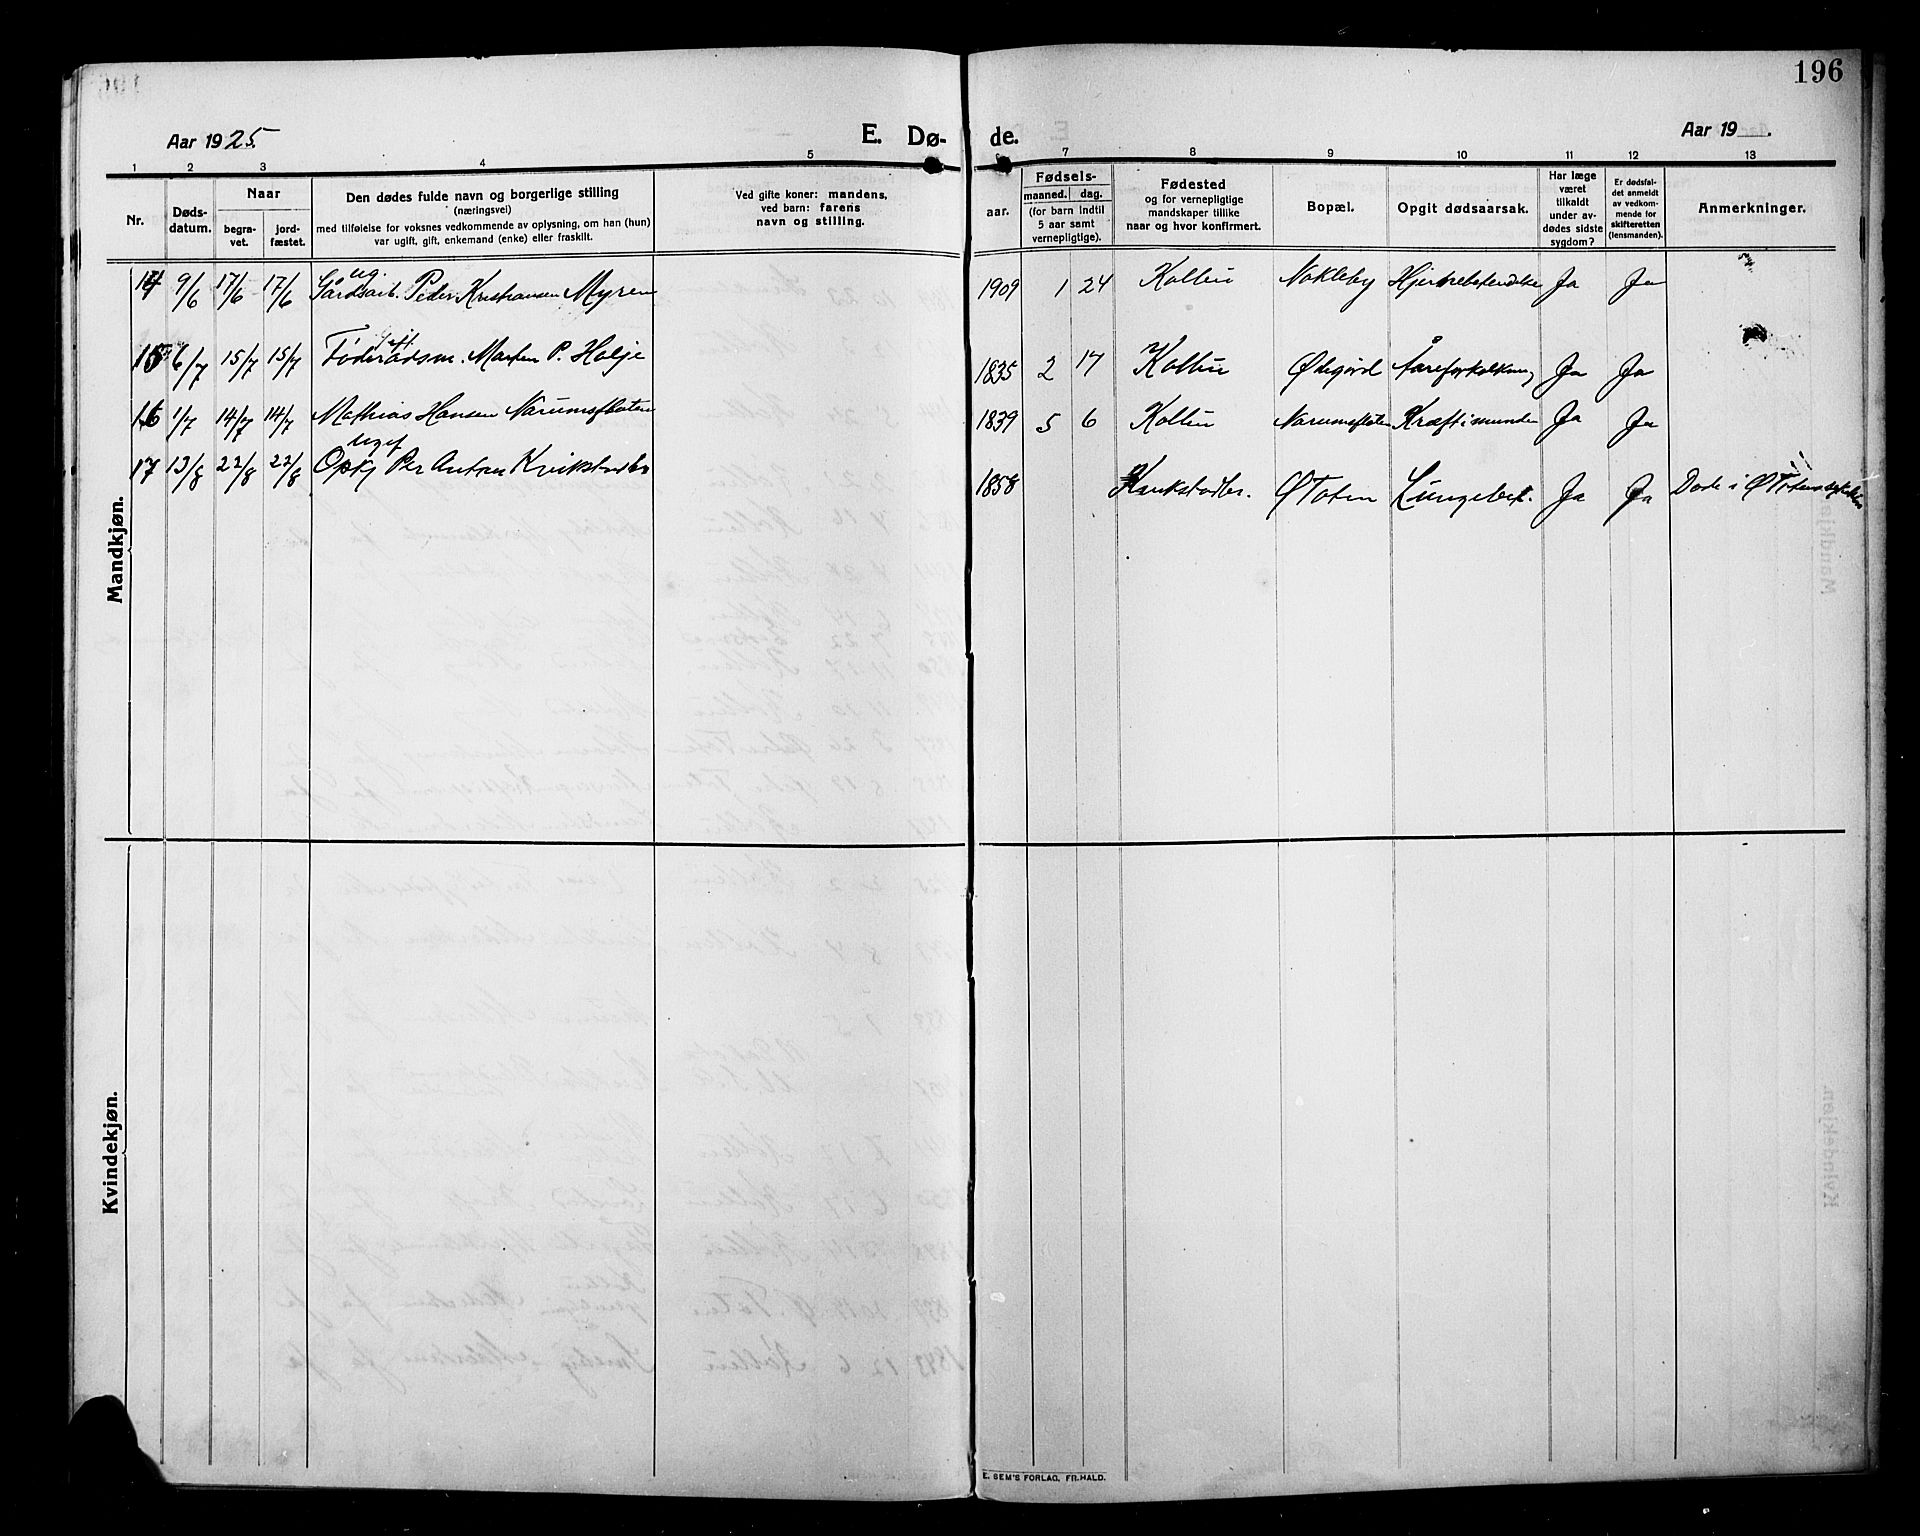 196
Aar 1925.
E. Dø-
de.
Aar 19 .
1 2 3 4 5 6 7 8 9 10 11 12 13
Nr.
Døds-
datum.
Naar
begra-
vet.
jord-
fæstet.
Den dødes fulde navn og borgerlige stilling
(næringsvei)
med tilføielse for voksnes vedkommende av oplysning, om han (hun)
var ugift, gift, enkemand (enke) eller fraskilt.
Ved gifte koner: mandens,
ved barn: farens
navn og stilling.
aar.
Fødsels-
maaned. dag.
(for barn indtil
5 aar samt
vernepligtige).
Fødested
og for vernepligtige
mandskaper tillike
naar og hvor konfirmert.
Bopæl.
Opgit dødsaarsak.
Har læge
været
tilkaldt
under av-
dødes sidste
sygdom?
Er dødsfal-
det anmeldt
av vedkom-
mende for
skifteretten
(lensmanden).
Anmerkninger.
Mandkjøn.
ug.
14 9/6 17/6 17/6 Gårdsarb. Peder Kristiansen Myren 1909 1 24 Kolbu Nøkleby Hjernebetendelse Ja Ja
gift
15 6/7 15/7 15/7 Føderådsm. Marten P. Holje 1835 2 17 Kolbu Øbegård Åreforkalkning Ja Ja
16 1/7 14/7 14/7 Mathias Hansen Narumsfloten 1839 5 6 Kolbu Narumsfloten Kræft i munden Ja Ja
ugif
17 13/8 22/8 22/8 Per Anton 1858 ØToten Lungebet. Ja Ja Døde i ØTotens sykehus
Kvindekjøn.
E. SEM'S FORLAG, FR.HALD.